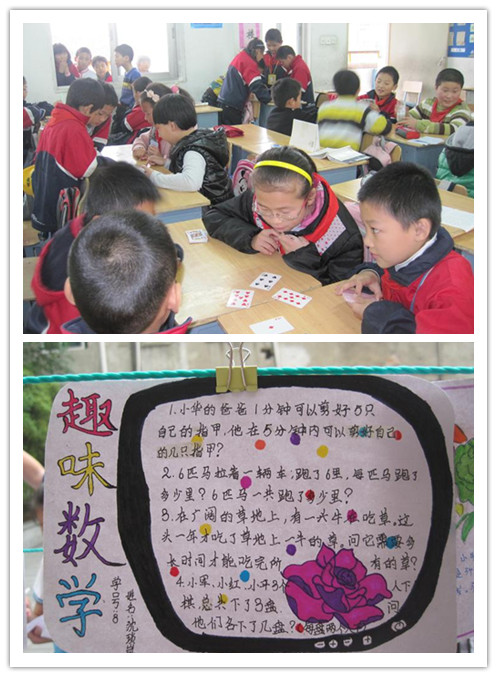 趣味数学
1.小华的爸爸1分钟可以剪好5只
自己的指甲,他在5分钟内可以剪好自己
的几只指甲?
2.6匹马拉着一辆车,跑了6里,每匹马跑了
多少里?6匹马一共跑了多少里?
3.在广阔的草地上,有一头牛在吃草。这
头一年才吃了草地上一半的草。问它需要多
长时间才能吃完所有的草?
4.小军、小红、小平3个人下
棋总共下了3盘 问
他们各下了几盘?
姓名:沈
学号:8